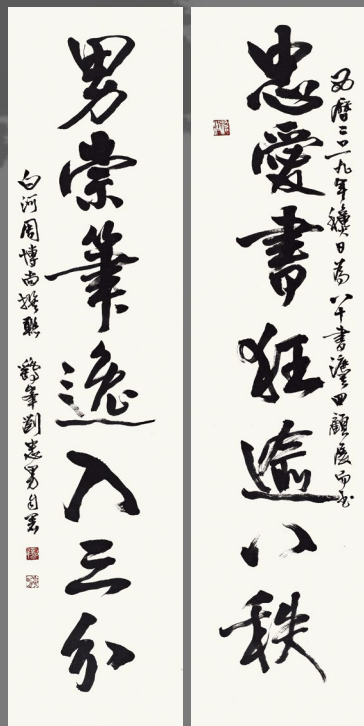 西曆二〇一九年穐日為八十書灋回顧展而書
忠愛書狂逾八秩
男崇筆逸入三分
白河周博尚撰聯 劉忠男自署